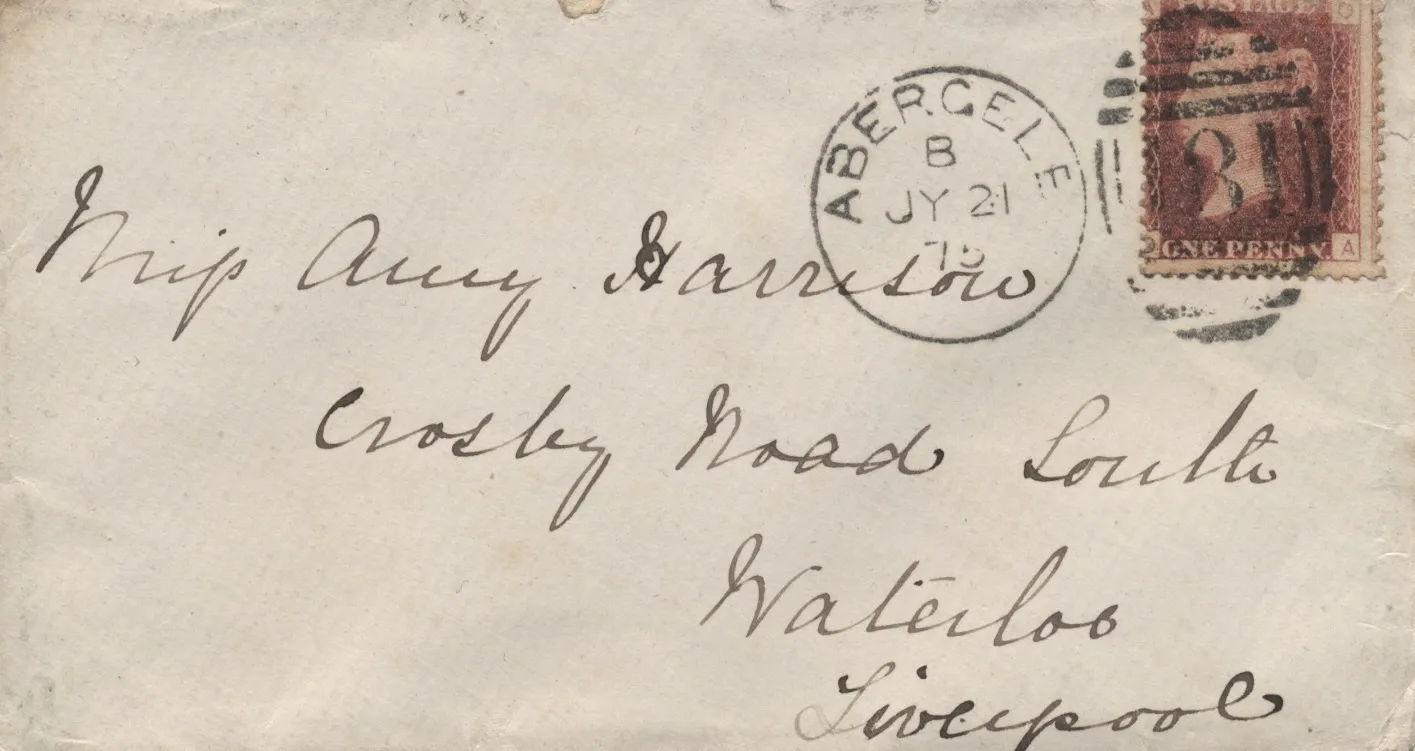 POSTAGE
D
ABERGELE
B
JY 21
75
81
ONE PENNY
A
Miss Amy Harrison
Crosby Road South
Waterloo
Liverpool